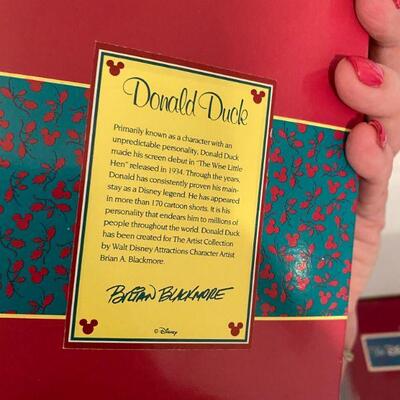 Donald Duck
Primarily known as a character with an
unpredictable personality, Donald Duck
made his screen debut in "The Wise Little
Hen" released in 1934. Through the years,
Donald has consistently proven his main-
stay as a Disney legend. He has appeared
in more than 170 cartoon shorts. It is his
personality that endears him to millions of
people throughout the world. Donald Duck
has been created for The Artist Collection
by Walt Disney Attractions Character Artist
Brian A. Blackmore.
Brian Blackmore
© Disney